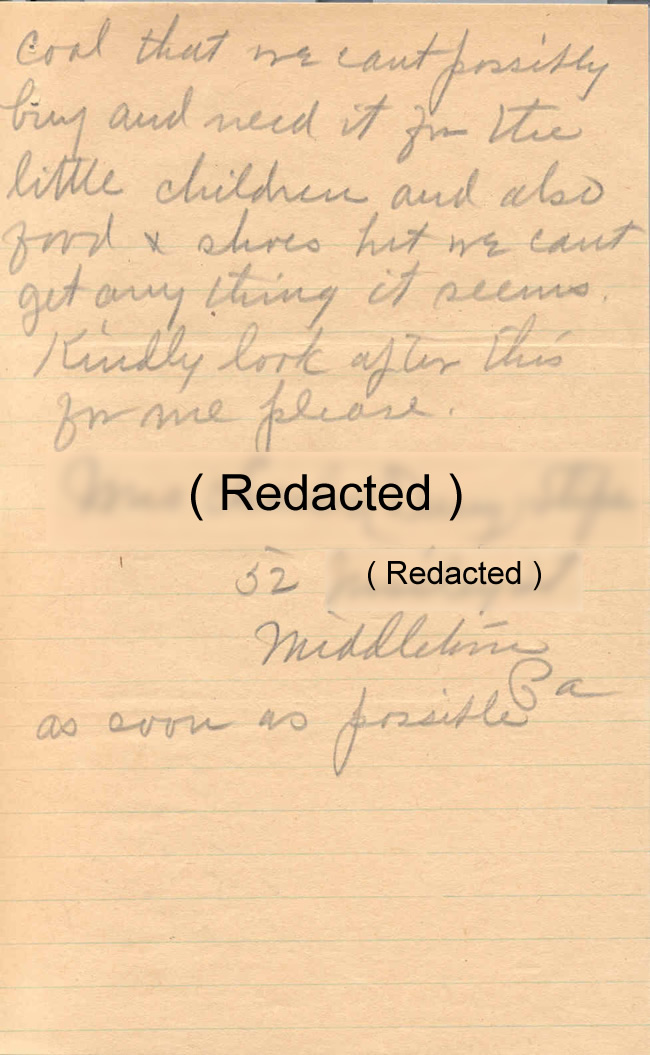 coal that we cant possibly
buy and need it for the
little children and also
food & shoes but we cant
get any thing it seems.
Kindly look after this
for me please.
( Redacted )
52 ( Redacted )
Middletown
Pa
as soon as possible